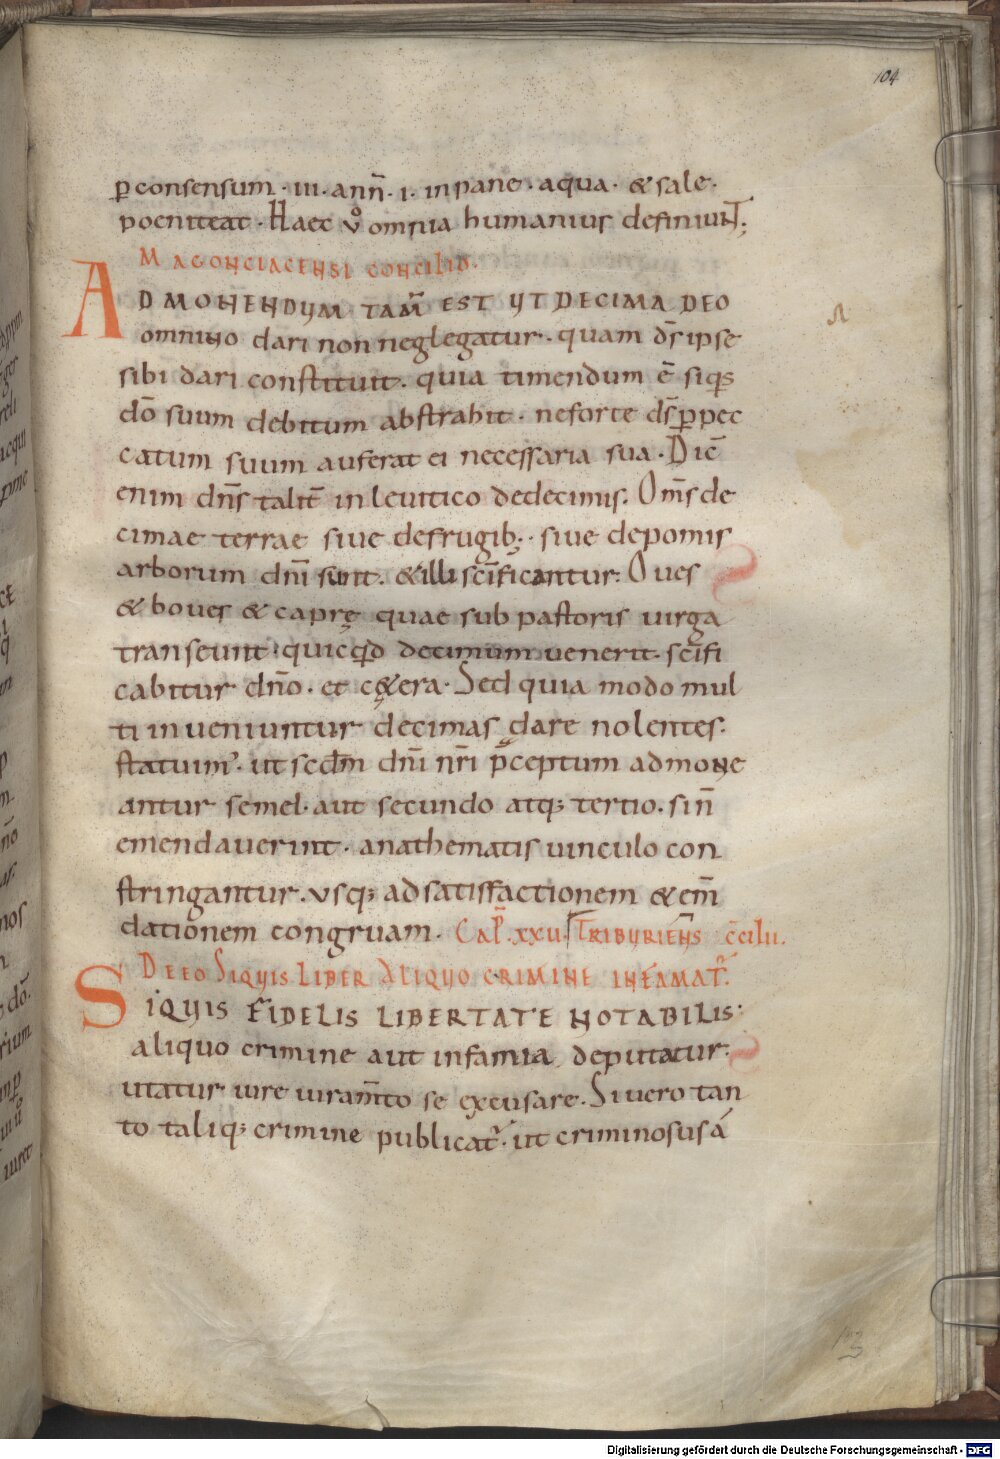 104
p̱ consensum · iii · ann̄ · i · in pane · aqua · & sale ·
poeniteat · Haec v̊ omnia humanius definiunt;
MAGONCIACENSI CONCILIO.
ADMONENDUM TAM̄ EST UT DECIMA DEO
omnino dari non neglegatur · quam d̄s ipse
sibi dari constituit · quia timendum ē siquis
dō suum debitum abstrahit · ne forte d̄s p̱ pec
catum suum auferat ei necessaria sua · Dic̄
enim dn̄s talit̄ in leuitico de decimis. Om̄s de
cimae terrae siue de frugib; · siue de pomis
arborum dn̄i sunt · & illi sc̄ificantur: Oues
& boues & caprę quae sub pastoris uirga
transeunt · quicqd decimum uenerit · sc̄ifi
cabitur dn̄o · et c&era · Sed quia modo mul
ti inueniuntur decimas dare nolentes ·
statuim' · ut secdm̄ dn̄i nr̄i p̄ceptum admone
antur semel · aut secundo atq; tertio · si n̄
emendauerint · anathematis uinculo con
stringantur · vsq; ad satisfactionem & em̄
dationem congruam · CAP̄. XXII TRIBURIENS c̄cilii.
DE EO SIQUIS LIBER ALIQUO CRIMINE INFAMAT̄.
SIQUIS FIDELIS LIBERTATE NOTABILIS ·
aliquo crimine aut infamia deputatur ·
utatur iure iuram̄to se excusare. Si uero tan
to taliq; crimine publicat̄ · ut criminosus á
Digitalisierung gefördert durch die Deutsche Forschungsgemeinschaft - DFG